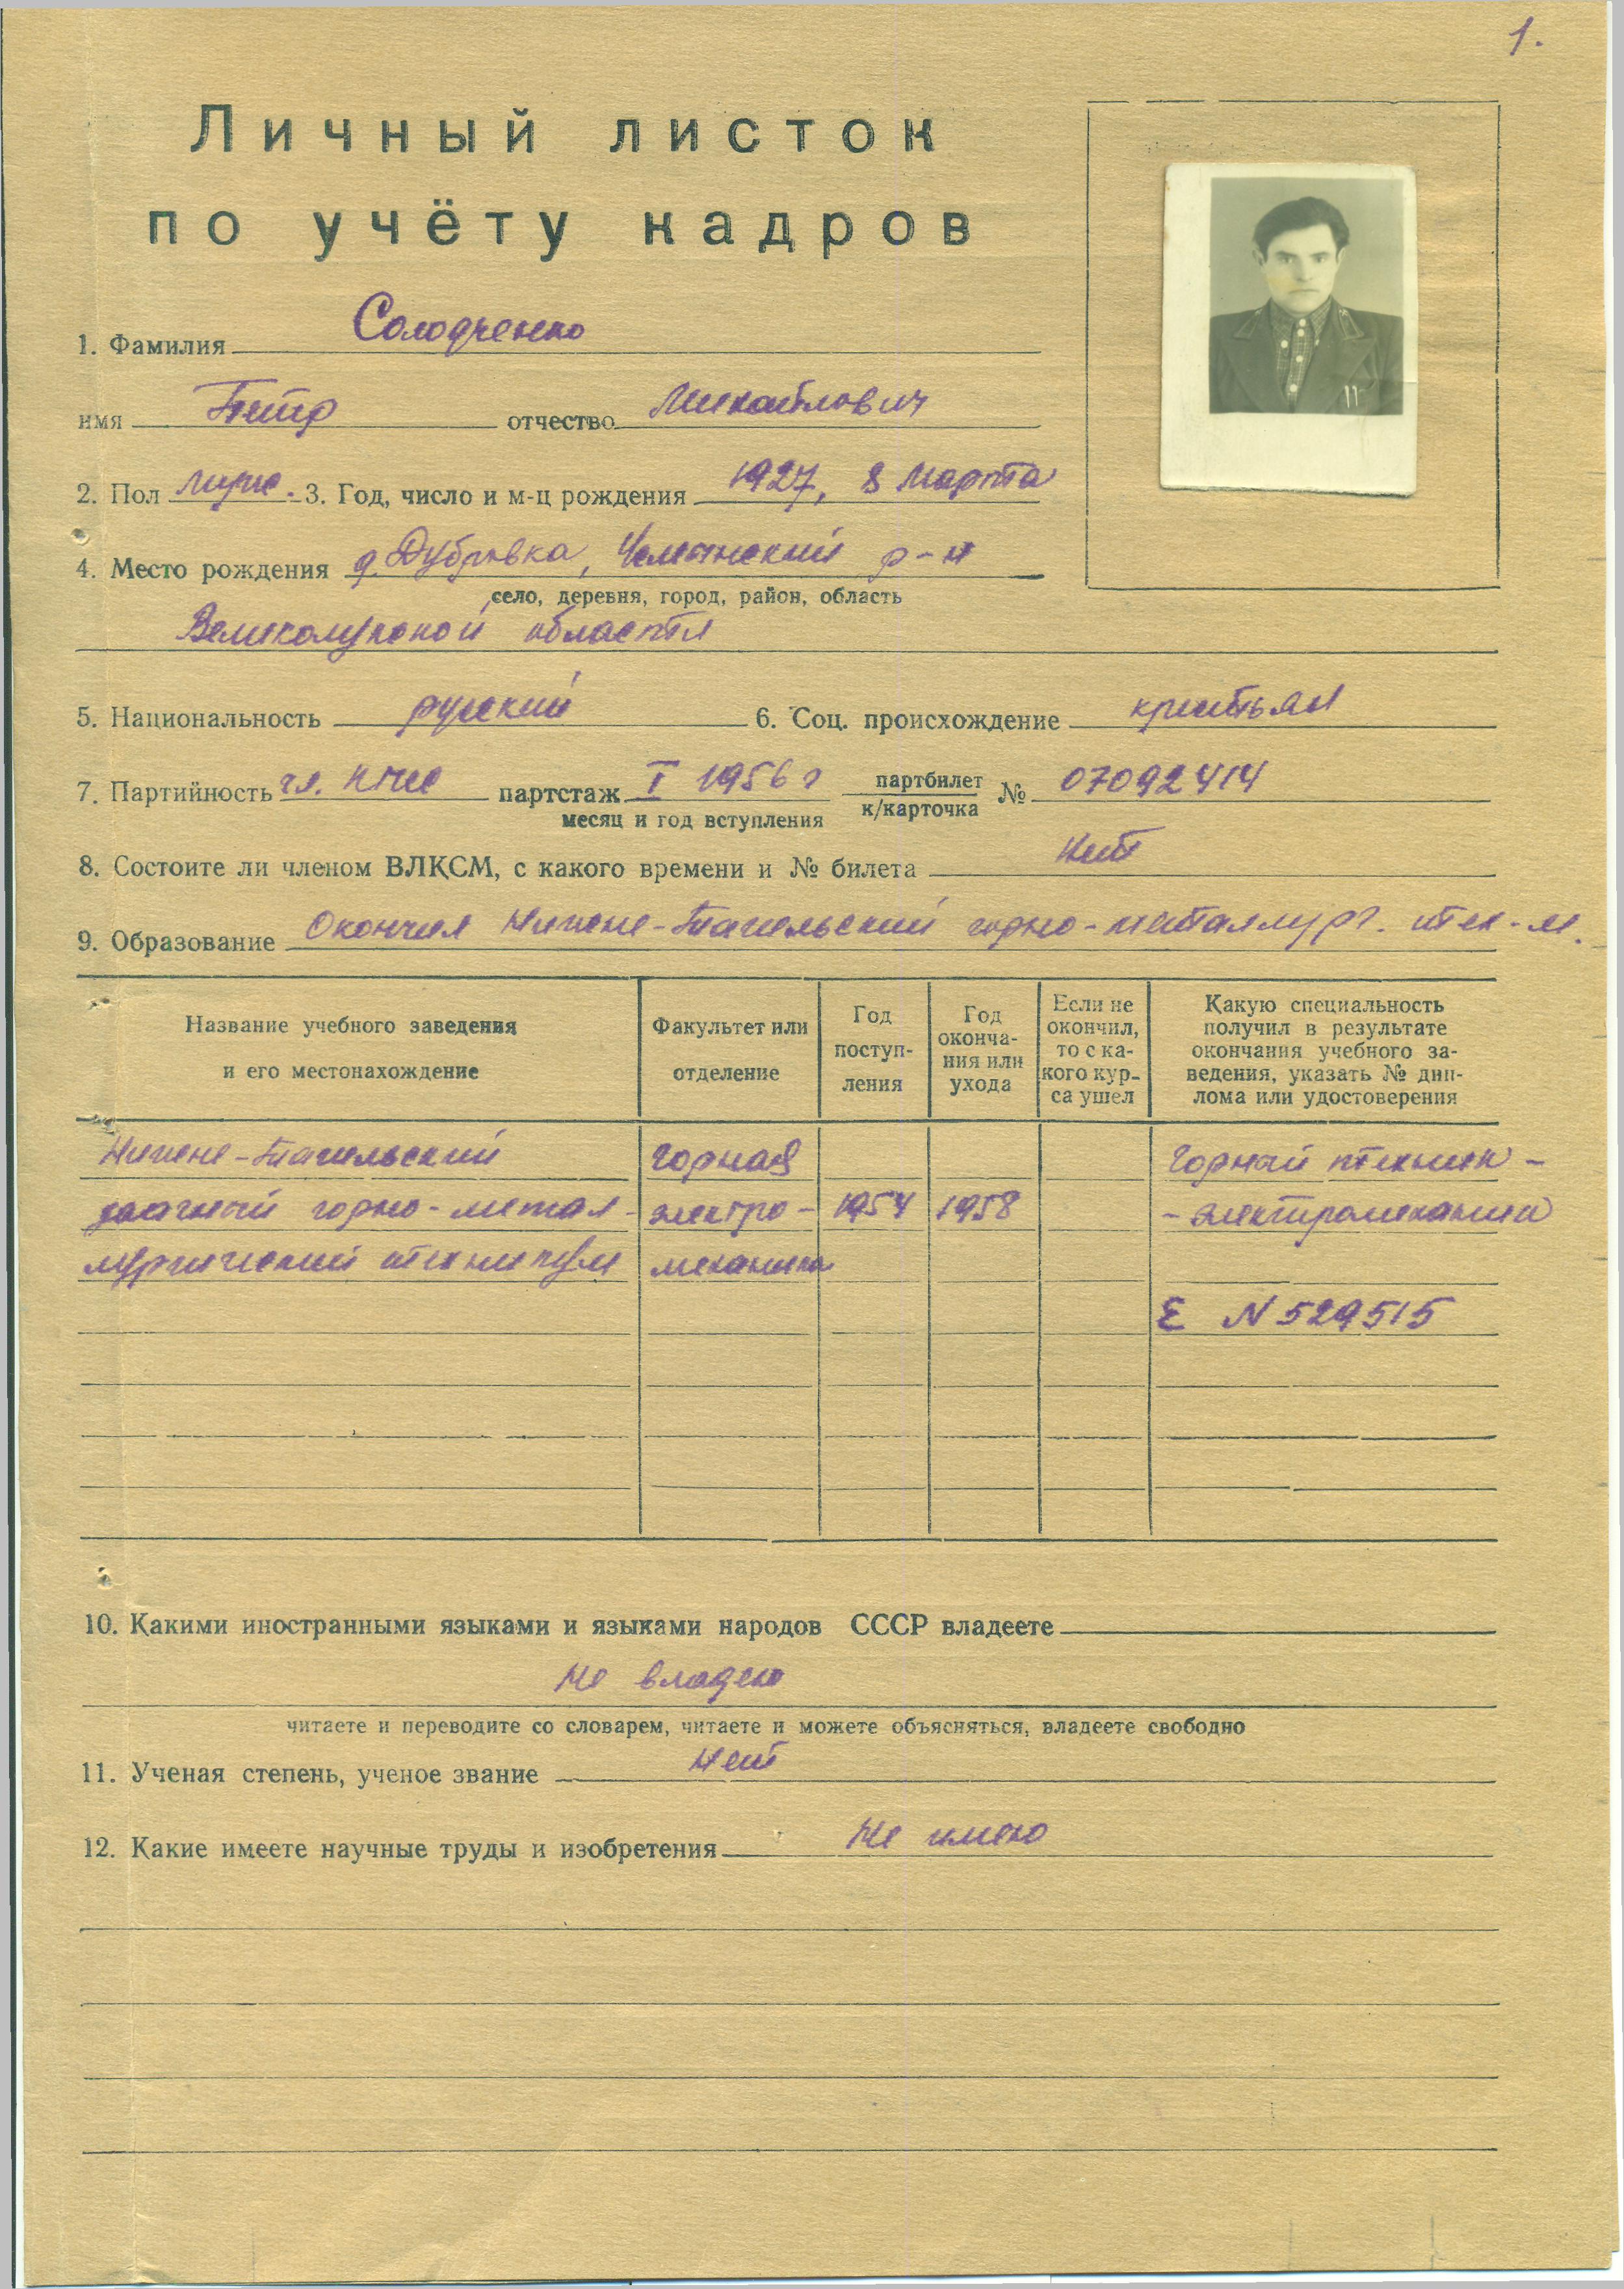 1.
Личный листок
по учёту кадров
1. Фамилия Солодченко
имя Петр отчество Михайлович
2. Пол муж. 3. Год, число и м-ц рождения 1927, 8 марта
4. Место рождения д. Дубровка, р-н
село, деревня, город, район, область
Великолукской области
5. Национальность русский 6. Соц. происхождение крестьян
7. Партийность чл. КПСС партстаж I 1956 г партбилет № 07092414
месяц и год вступления к/карточка
8. Состоите ли членом ВЛКСМ, с какого времени и № билета Нет
9. Образование Окончил Нижне-Тагильский горно-металлург. тех-м.
Название учебного заведения и его местонахождение
Факультет или отделение
Год поступ-ления
Год оконча-ния или ухода
Если не окончил, то с ка-кого кур-са ушел
Какую специальность получил в результате окончания учебного за-ведения, указать № дип-лома или удостоверения
Нижне-Тагильский горная Горный техник -
заочный горно-метал- электро- 1954 1958 - электромеханик
лургический техникум механика
Е N 529515
10. Какими иностранными языками и языками народов СССР владеете
Не владею
читаете и переводите со словарем, читаете и можете объясняться, владеете свободно
11. Ученая степень, ученое звание Нет
12. Какие имеете научные труды и изобретения Не имею